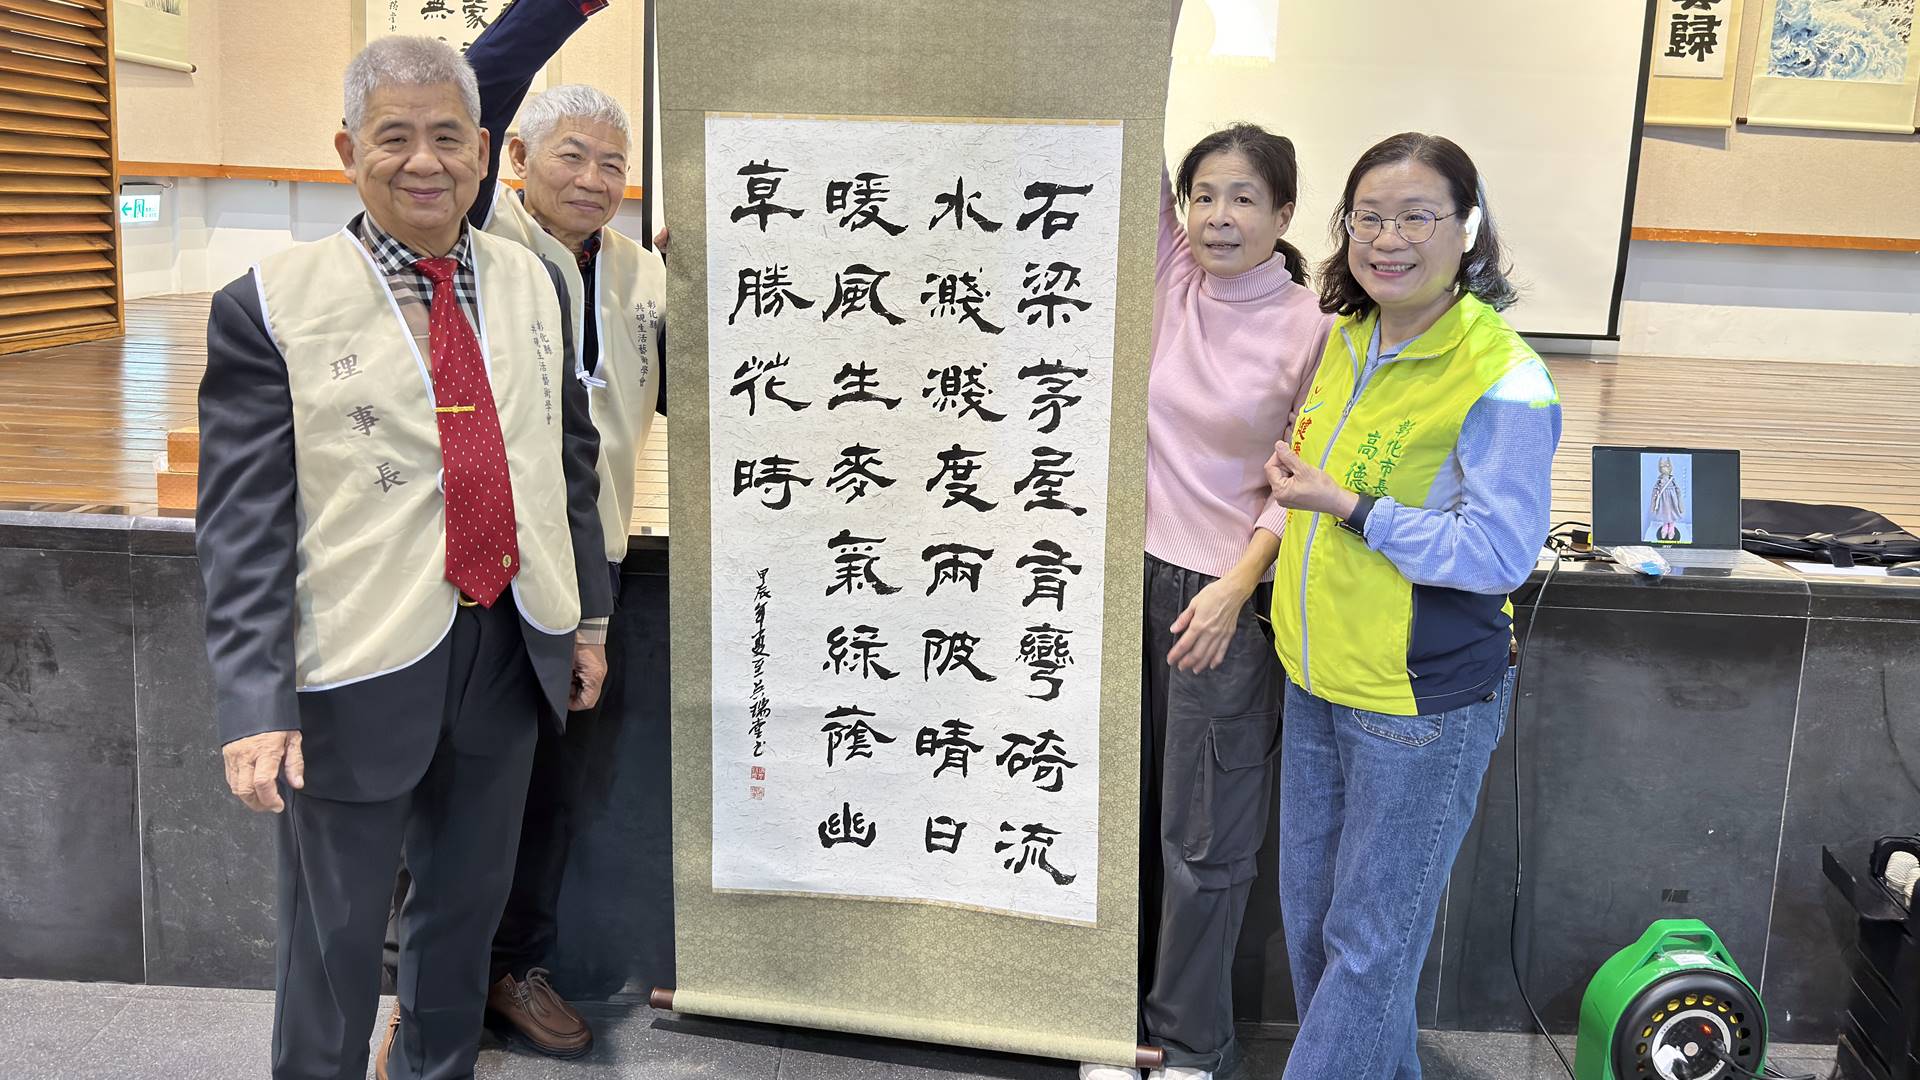 石梁茅屋有彎碕流
水濺濺度兩陂晴日
暖風生麥氣綠蔭幽
草勝花時
甲辰年夏至
理事長
彰化縣
共硯生活藝術學會
彰化縣
共硯生活藝術學會
彰化市長
高德
健
歸
無
蒙